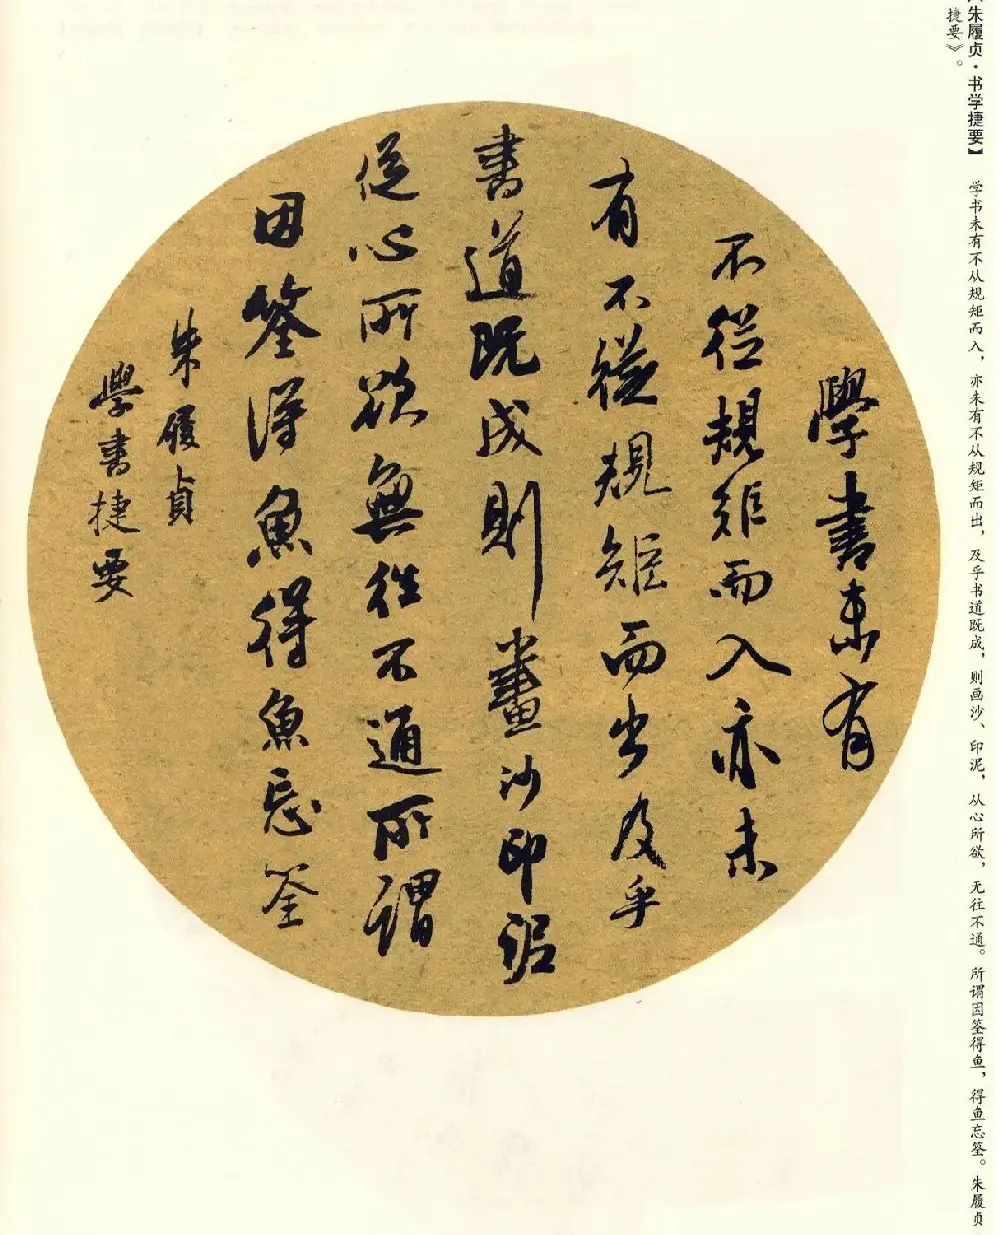 【朱履贞·书学捷要】 学书未有不从规矩而入，亦未有不从规矩而出，及乎书道既成，则画沙、印泥，从心所欲，无往不通。所谓因筌得鱼，得鱼忘筌。朱履贞
捷要》。
學書未有
不從規矩而入亦未
有不從規矩而出及乎
書道既成則畫沙印泥
從心所欲無往不通所謂
因筌得魚得魚忘筌
朱履貞
學書捷要